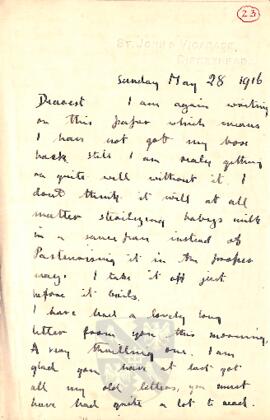 23
ST. JOHN'S VICARAGE,
BIRKENHEAD.
Sunday May 28 1916
Dearest I am again writing
on this paper which means
I have not got my box
back still I am really getting
on quite well without it. I
don't think it will at all
matter sterilizing babys milk
in a saucepan instead of
Pasteurising it in the proper
way. I take it off just
before it boils.
I have had a lovely long
letter from you this morning.
A very thrilling one. I am
glad you have at last got
all my old letters, you must
have had quite a lot to read.